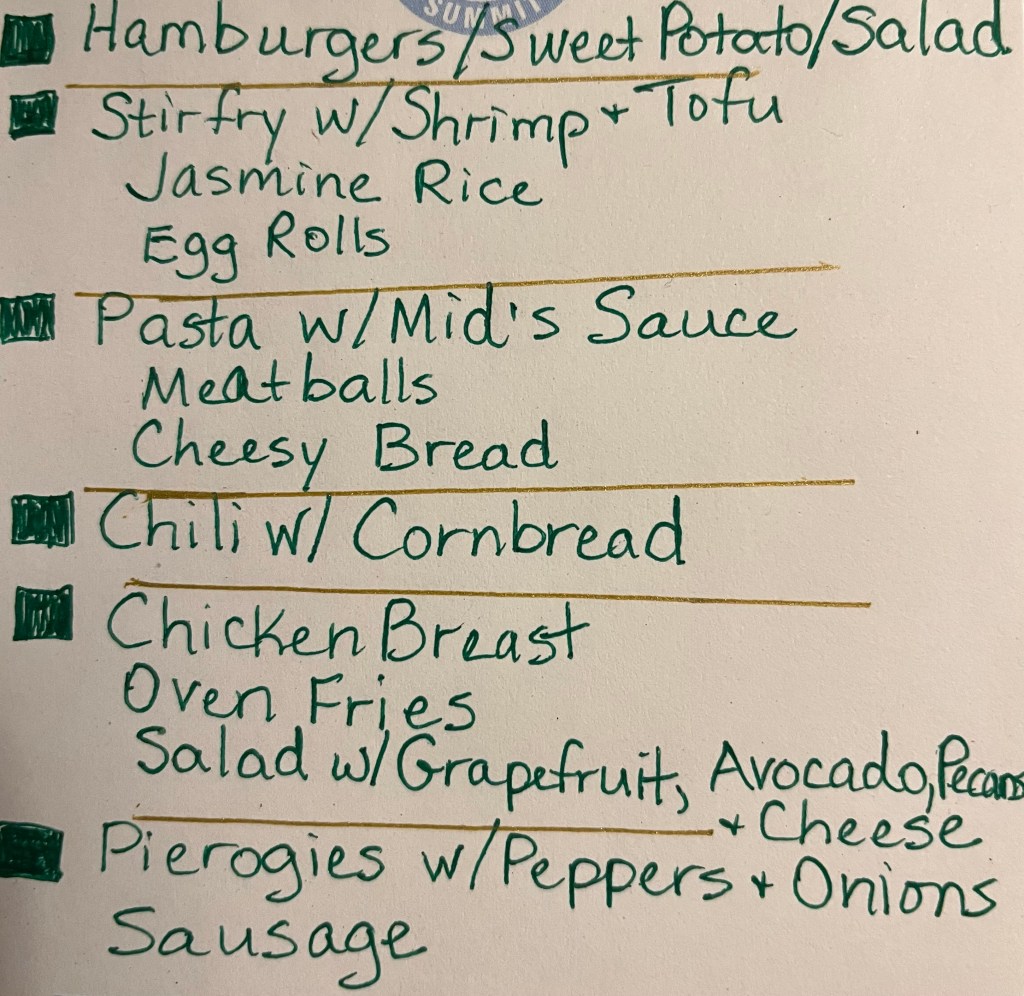 SUMMIT
Hamburgers/Sweet Potato/Salad
Stirfry w/Shrimp + Tofu
Jasmine Rice
Egg Rolls
Pasta w/Mid's Sauce
Meatballs
Cheesy Bread
Chili w/ Cornbread
Chicken Breast
Oven Fries
Salad w/Grapefruit, Avocado, Pecans
+ Cheese
Pierogies w/Peppers + Onions
Sausage